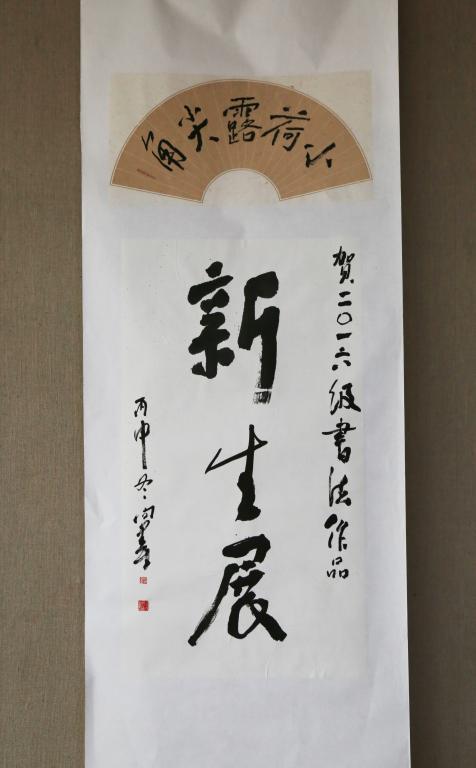 小荷露尖角
賀二〇一六级書法作品
新生展
丙申冬